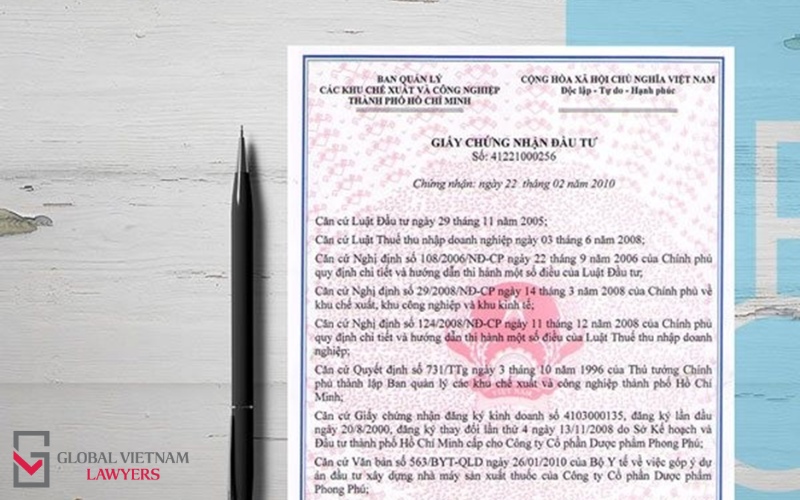 BAN QUẢN LÝ
CÁC KHU CHẾ XUẤT VÀ CÔNG NGHIỆP
THÀNH PHỐ HỒ CHÍ MINH
CỘNG HÒA XÃ HỘI CHỦ NGHĨA VIỆT NAM
Độc lập - Tự do - Hạnh phúc
GIẤY CHỨNG NHẬN ĐẦU TƯ
Số: 41221000256
Chứng nhận: ngày 22 tháng 02 năm 2010
Căn cứ Luật Đầu tư ngày 29 tháng 11 năm 2005;
Căn cứ Luật Thuế thu nhập doanh nghiệp ngày 03 tháng 6 năm 2008;
Căn cứ Nghị định số 108/2006/NĐ-CP ngày 22 tháng 9 năm 2006 của Chính phủ
quy định chi tiết và hướng dẫn thi hành một số điều của Luật Đầu tư;
Căn cứ Nghị định số 29/2008/NĐ-CP ngày 14 tháng 3 năm 2008 của Chính phủ về
khu chế xuất, khu công nghiệp và khu kinh tế;
Căn cứ Nghị định số 124/2008/NĐ-CP ngày 11 tháng 12 năm 2008 của Chính phủ
quy định chi tiết và hướng dẫn thi hành một số điều của Luật Thuế thu nhập doanh
nghiệp;
Căn cứ Quyết định số 731/TTg ngày 3 tháng 10 năm 1996 của Thủ tướng Chính
phủ thành lập Ban quản lý các khu chế xuất và công nghiệp thành phố Hồ Chí
Minh;
Căn cứ Giấy chứng nhận đăng ký kinh doanh số 4103000135, đăng ký lần đầu
ngày 20/8/2000, đăng ký thay đổi lần thứ 4 ngày 13/11/2008 do Sở Kế hoạch và
Đầu tư thành phố Hồ Chí Minh cấp cho Công ty Cổ phần Dược phẩm Phong Phú;
Căn cứ Văn bản số 563/BYT-QLD ngày 26/01/2010 của Bộ Y tế về việc góp ý dự
án đầu tư xây dựng nhà máy sản xuất thuốc của Công ty Cổ phần Dược phẩm
Phong Phú;
GLOBAL VIETNAM
LAWYERS